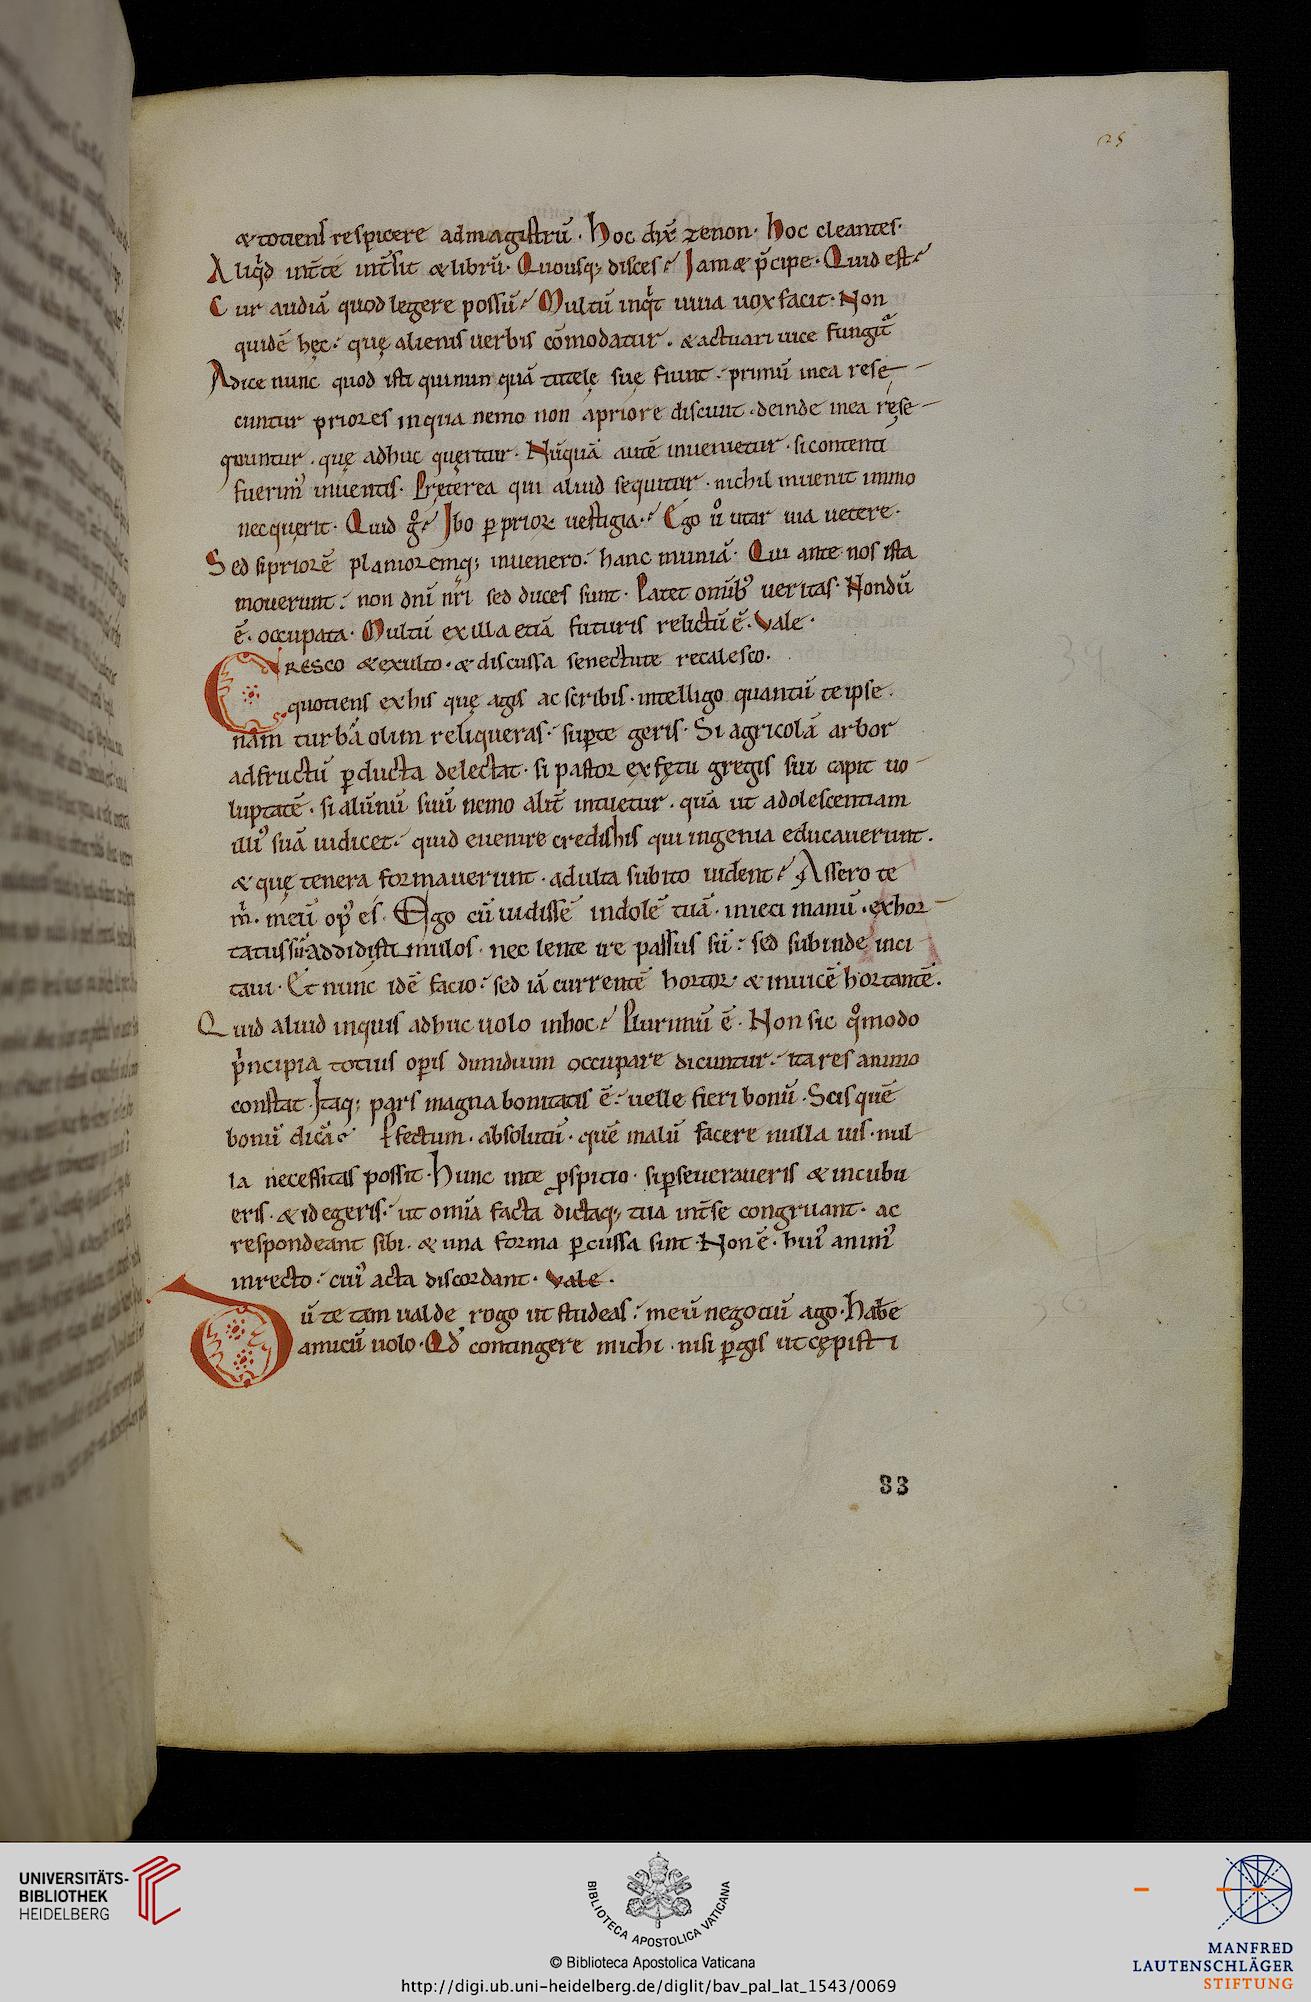 25
&totiens respicere ad magistrū. Hoc dix̄ zenon. Hoc cleantes.
Aliq̇d int̄ te int̄sit & librū. Quousq; disces? Iam & p̄cipe. Quid est?
Cur audiā quod legere possū? Multū inq̇t uiua uox facit. Non
quidē hęc. quę alienis uerbis cōmodatur. & actuarii uice fungit᷑
Adice nunc quod isti qui nun quā tutelę suę fiunt. primū in ea rese
cuntur priores in qua nemo non a priore disciuit. deinde in ea rese
quuntur. quę adhuc queritur. Nūquā autē inuenietur. si contenti
fuerim᾽ inuentis. Pręterea qui aliud sequitur. nichil inuenit immo
nec querit. Quid g̊? Ibo p̱ prioꝝ uestigia? Ego ů utar uia uetere.
Sed si priorē planioremq; inuenero. hanc muniā. Qui ante nos ista
mouerunt. non dn̄i nr̄i sed duces sunt. Patet om̄ib᾽ ueritas. Nondū
ē. occupata. Multū ex illa etiā futuris relictū ē. Vale.
CRESCO & exulto. & discussa senectute recalesco.
quotiens ex his quę agis ac scribis. intelligo quantū te ipse.
nam turbā olim reliqueras. sup̱ te geris. Si agricolā arbor
ad fructū p̱ducta delectat. si pastor ex fętu gregis sui capit uo
luptatē. si alūnū suū nemo alit̄ intuetur. quā ut adolescentiam
illi᾽ suā iudicet. quid euenire credis his qui ingenia educauerunt.
& quę tenera formauerunt. adulta subito uident? Assero te
m̊. meū op᾽ es. Ego cū uidissē indolē tuā. inieci manū. exhor
tatus sū addidi stimulos. nec lente ire passus sū. sed subinde inci
taui. Et nunc idē facio. sed iā currentē hortor. & inuicē hortantē.
Quid aliud inquis adhuc uolo in hoc? Plurimū ē. Non sic q̊modo
p̊ncipia totius op̱is dimidium occupare dicuntur. ita res animo
constat. Itaq; pars magna bonitatis ē. uelle fieri bonū. Scis quē
bonū dicā? P̱fectum. absolutū. quē malū facere nulla uis. nul
la necessitas possit. Hunc in te ꝓspicio. si p̱seueraueris & incubu
eris. & id egeris. ut om̄ia facta dictaq; tua int̄ se congruant. ac
respondeant sibi. & una forma p̱cussa sint. Non ē. hui᾽ anim᾽
in recto. cui᾽ acta discordant. Vale.
Dū te tam ualde rogo ut studeas. meū negotiū ago. Habe
amicū uolo. Qđ contingere michi. nisi p̱gis ut cępisti
83
UNIVERSITÄTS-
BIBLIOTHEK
HEIDELBERG
BIBLIOTECA APOSTOLICA VATICANA
© Biblioteca Apostolica Vaticana
http://digi.ub.uni-heidelberg.de/diglit/bav_pal_lat_1543/0069
MANFRED
LAUTENSCHLÄGER
STIFTUNG